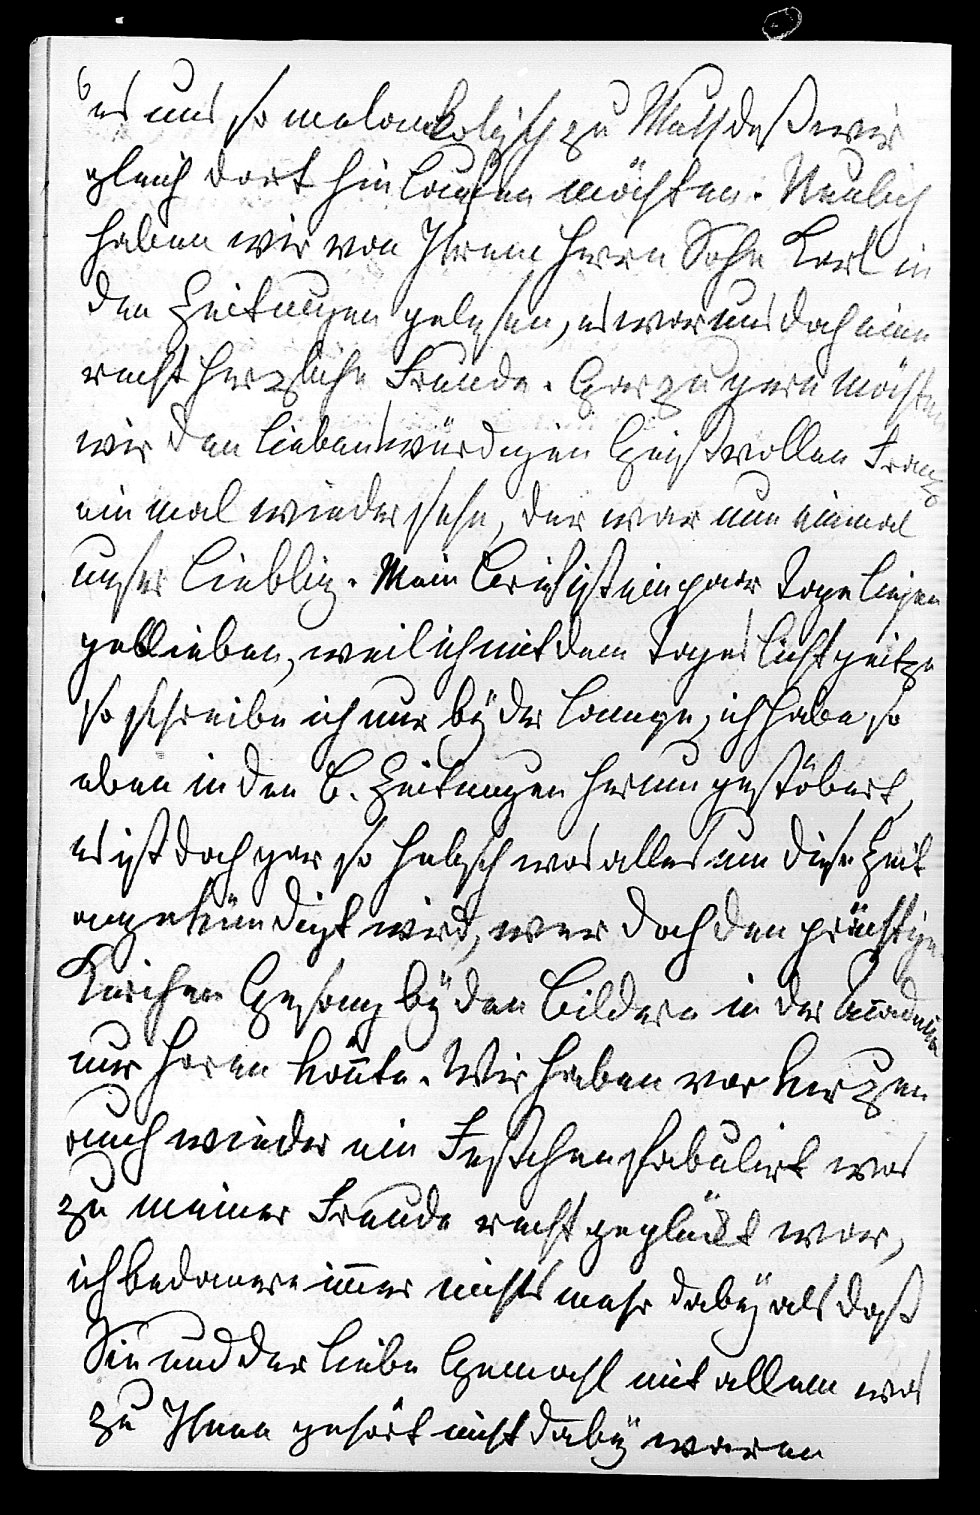 es uns so melanckolisch zu Muth daß wir
gleich dort hin laufen möchten. Neulich
haben wir von Ihrem Herrn Sohn Karl in
den Zeitungen gelesen, es war uns doch eine
recht herzliche Freude. Gar zu gern möchten
wir den liebenswürdigen Geistvollen Franz
ein mal wieder sehn, der war nun einmal
unser Liebling. Mein Brief ist ein paar Tage liegen
geblieben, weil ich mit dem Tages licht geitze
so schreibe ich nur bÿ der Lampe, ich habe so
eben in den B. Zeitungen herum gestöbert,
es ist doch gar so hübsch was alles um diese Zeit
angekündigt wird, wer doch den prächtigen
Kirchen Gesang bÿ den Bildern in der Academie
nur hören kön̄te. Wir haben vor kurzen
auch wieder ein Festchen fabulirt was
zu meiner Freude recht geglückt war,
ich bedauere im̄er nichts mehr dabÿ als daß
Sie und der liebe Gemahl mit allem was
zu Ihnen gehört nicht dabÿ waren